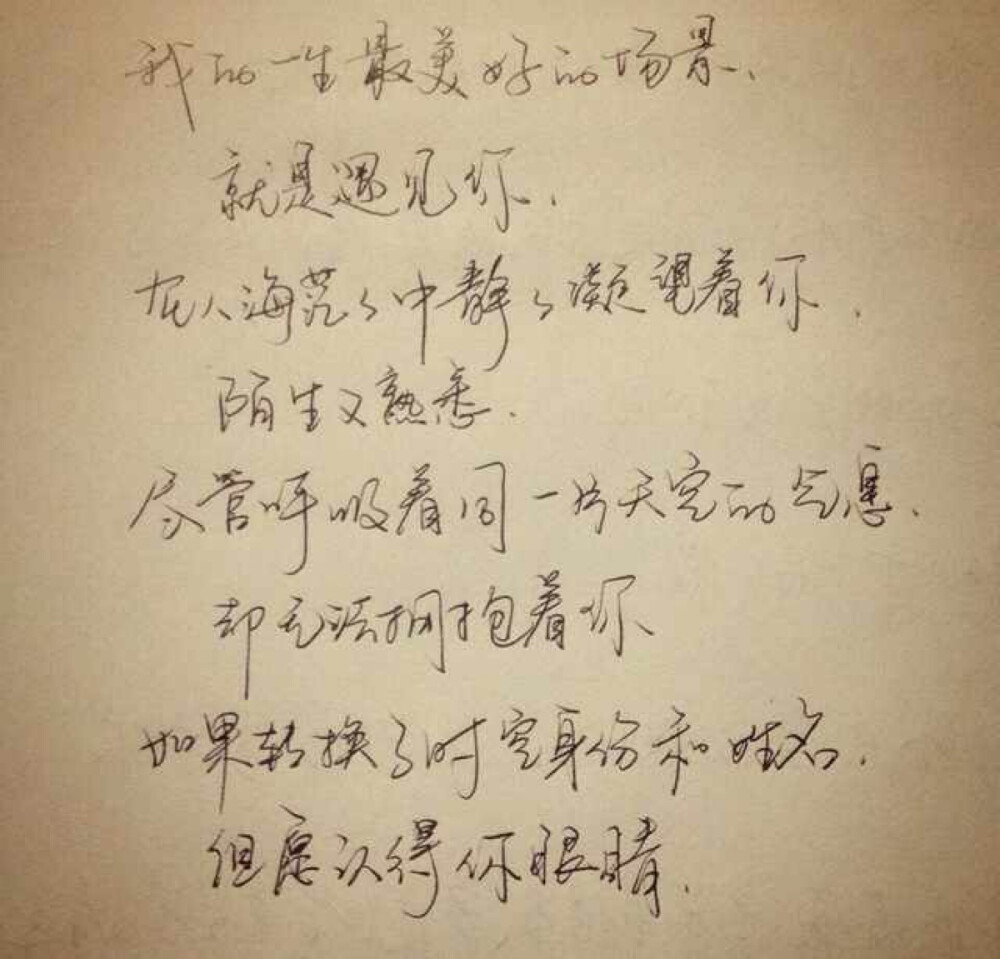 我的一生最美好的场景、
就是遇见你、
在人海茫々中静々凝望着你、
陌生又熟悉、
尽管呼吸着同一片天空的气息、
却无法拥抱着你
如果转换了时空身份和姓名、
但愿认得你眼睛、